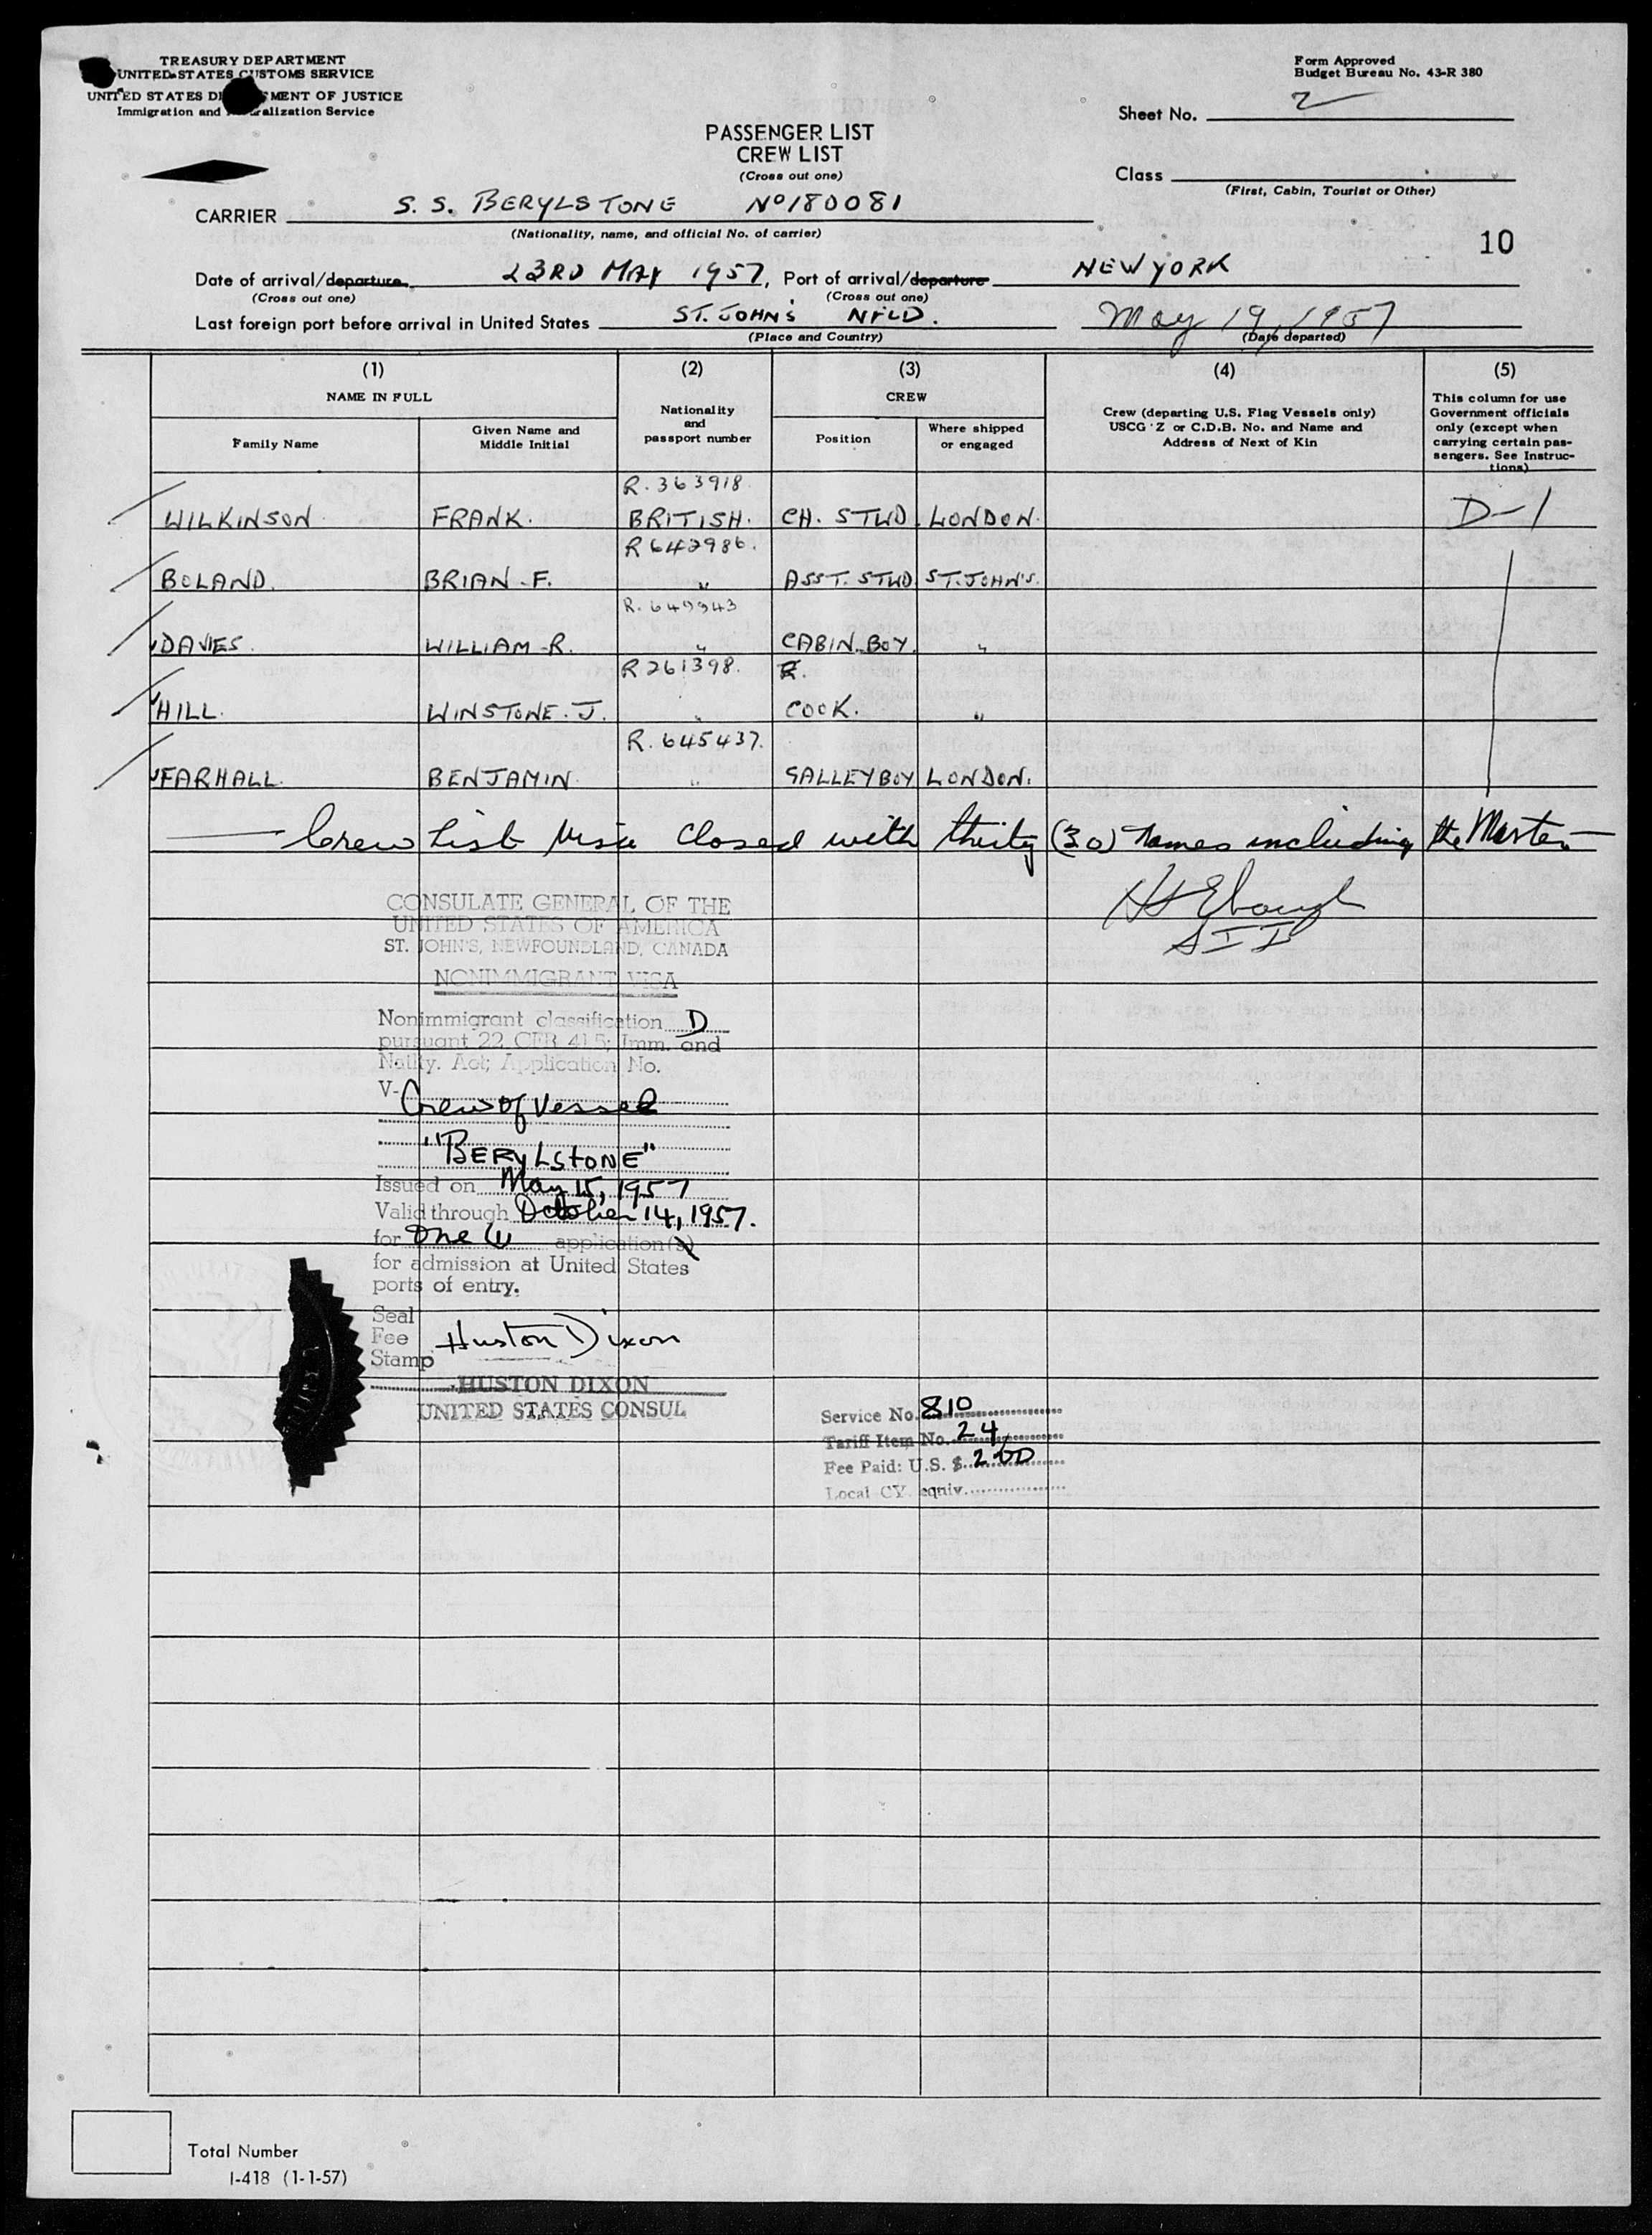 TREASURY DEPARTMENT
UNITED STATES CUSTOMS SERVICE
UNITED STATES MENT OF JUSTICE
Immigration and Service
Form Approved
Budget Bureau No. 43-R 380
Sheet No. 2
PASSENGER LIST
CREW LIST
(Cross out one)
Class
(First, Cabin, Tourist or Other)
CARRIER S. S. BERYLSTONE No 180081
(Nationality, name, and official No. of carrier)
10
Date of arrival/departure 23RD MAY 1957, Port of arrival/departure NEW YORK
(Cross out one) (Cross out one)
Last foreign port before arrival in United States ST. JOHN'S NFLD. May 19, 1957
(Place and Country) (Date departed)
(1) (2) (3) (4) (5)
NAME IN FULL
Family Name
Given Name and
Middle Initial
Nationality
and
passport number
CREW
Position
Where shipped
or engaged
Crew (departing U.S. Flag Vessels only)
USCG Z or C.D.B. No. and Name and
Address of Next of Kin
This column for use
Government officials
only (except when
carrying certain pas-
sengers. See Instruc-
tions)
R. 363918
WILKINSON FRANK. BRITISH. CH. STWD. LONDON. D-1
R 642986.
BOLAND. BRIAN F. " ASST. STWD ST. JOHN'S.
R. 649943
DAVIES. WILLIAM R. " CABIN BOY. "
R 261398.
HILL. WINSTONE. J. " COOK. "
R. 645437.
FARHALL. BENJAMIN. " GALLEY BOY LONDON.
Crew List Visa Closed with thirty (30) names including the Master
CONSULATE GENERAL OF THE
UNITED STATES OF AMERICA
ST. JOHN'S, NEWFOUNDLAND, CANADA
NONIMMIGRANT VISA
Nonimmigrant classification D
pursuant 22 CFR 41.5; Imm. and
Natlty. Act; Application No.
V- Crew of Vessel
"BERYLSTONE"
Issued on May 15, 1957
Valid through October 14, 1957.
for One (1) application(s)
for admission at United States
ports of entry.
Seal
Fee Huston Dixon
Stamp
HUSTON DIXON
UNITED STATES CONSUL
Service No. 810
Tariff Item No. 24
Fee Paid: U.S. $ 2.00
Local CY. equiv.
Total Number
I-418 (1-1-57)